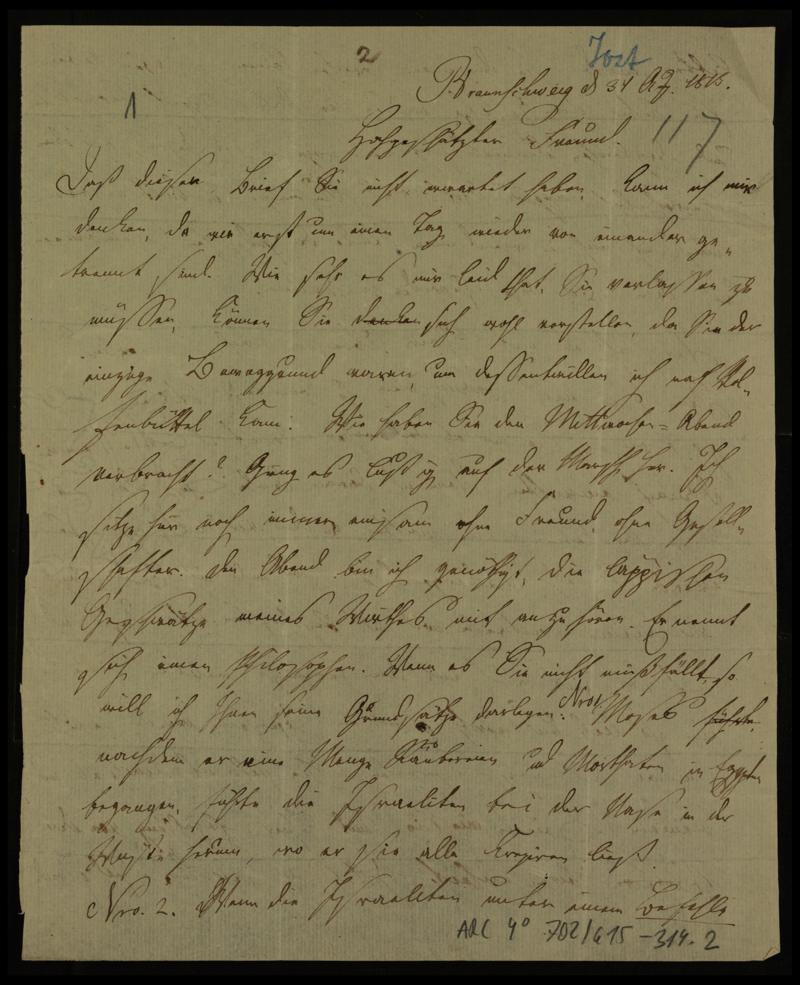 2
Jost
Braunschweig d 31 Ag. 1815.
1
Hochgeschätzter Freund.
117
Daß dieser Brief Sie nicht erwartet haben kann ich mir
denken, da wir erst um einen Tag wieder von einander ge-
trennt sind. Wie sehr es mir leid that, Sie verlassen zu
müssen, können Sie denken sich wohl vorstellen, da Sie der
einzige Beweggrund waren, um dessentwillen ich nach Wol-
fenbüttel kam. Wie haben Sie den Mittwochen-Abend
verbracht? Gieng es lustig auf der her. Ich
sitze hier noch immer einsam ohne Freund, ohne Gesell-
schafter. Den Abend bin ich genöthigt, die läppischen
Geschwätze meines Wirthes mit anzuhören. Er nennt
sich einen Philosophen. Wenn es Sie nicht mißfällt, so
will ich Ihnen seine Grundsätze darlegen. Nro 1 Moses führte,
nachdem er eine Menge Räubereien und Mordthaten in Egypten
begangen, führte die Israeliten bei der Nase in der
Wüste herum, wo er sie alle krepiren ließ.
Nro. 2. Wenn die Israeliten unter einem Befehle
ARC 4° 702/615 -314. 2